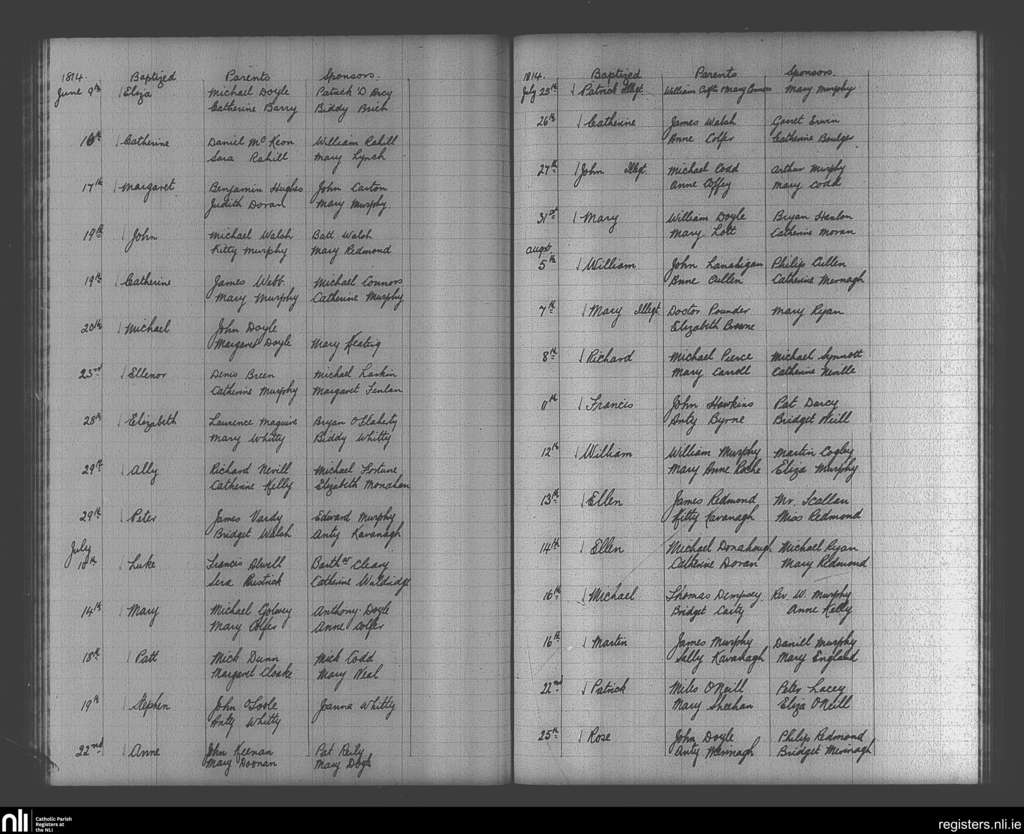 1814. Baptized Parents Sponsors.
June 9th Eliza Michael Doyle Patrick D'Arcy
Catherine Barry Biddy
16th Catherine Daniel McKeon William Rahill
Sara Rahill Mary Lynch
17th Margaret Benjamin Hughes John Carton
Judith Doran Mary Murphy
19th John Michael Walsh Batt Walsh
Kitty Murphy Mary Redmond
19th Catherine James Webb Michael Connors
Mary Murphy Catherine Murphy
20th Michael John Doyle
Margaret Doyle Mary Keating
23rd Ellenor Denis Breen Michael Larkin
Catherine Murphy Margaret Fenlan
28th Elizabeth Laurence Maguire Bryan O'Flaherty
Mary Whitty Biddy Whitty
29th Ally Richard Nevill Michael Fortune
Catherine Kelly Elizabeth Monahan
29th Peter James Vardy Edward Murphy
Bridget Walsh Anty Kavanagh
July
10th Luke Francis Barthw Cleary
Sera Catherine
14th Mary Michael Anthony Doyle
Mary Colfer Anne Colfer
18th Patt Mick Dunn Mick Codd
Margaret Cloake Mary Neal
19th Stephen John O'Toole Joanna Whitty
Anty Whitty
22nd Anne John Keenan Pat Reily
Mary Doonan Mary Doyle
1814. Baptized Parents Sponsors.
July 25th Patrick Illegt. William Mary Connors Mary Murphy
26th Catherine James Walsh Garret Erwin
Anne Colfer Catherine Boulger
27th John Illegt. Michael Codd Arthur Murphy
Anne Coffey Mary Codd
31st Mary William Doyle Bryan Hanlon
Mary Lott Catherine Moran
Augst
5th William John Lanahigan Philip Cullen
Anne Cullen Catherine Mernagh
7th Mary Illegt Doctor Pounder Mary Ryan
Elizabeth Browne
8th Richard Michael Pierce Michael Synnott
Mary Carroll Catherine Neville
11th Francis John Hawkins Pat Darcy
Anty Byrne Bridget Neill
12th William William Murphy Martin Cogley
Mary Anne Roche Eliza Murphy
13th Ellen James Redmond Mr. Scallan
Kitty Kavanagh Miss Redmond
14th Ellen Michael Donahough Michael Ryan
Catherine Doran Mary Redmond
16th Michael Thomas Dempsey Rev. W. Murphy
Bridget Carty Anne Kelly
16th Martin James Murphy Daniel Murphy
Sally Kavanagh Mary England
22nd Patrick Miles O'Neill Peter Lacey
Mary Sheehan Eliza O'Neill
25th Rose John Doyle Philip Redmond
Anty Mernagh Bridget Mernagh
nli Catholic Parish
Registers at
the NLI
registers.nli.ie